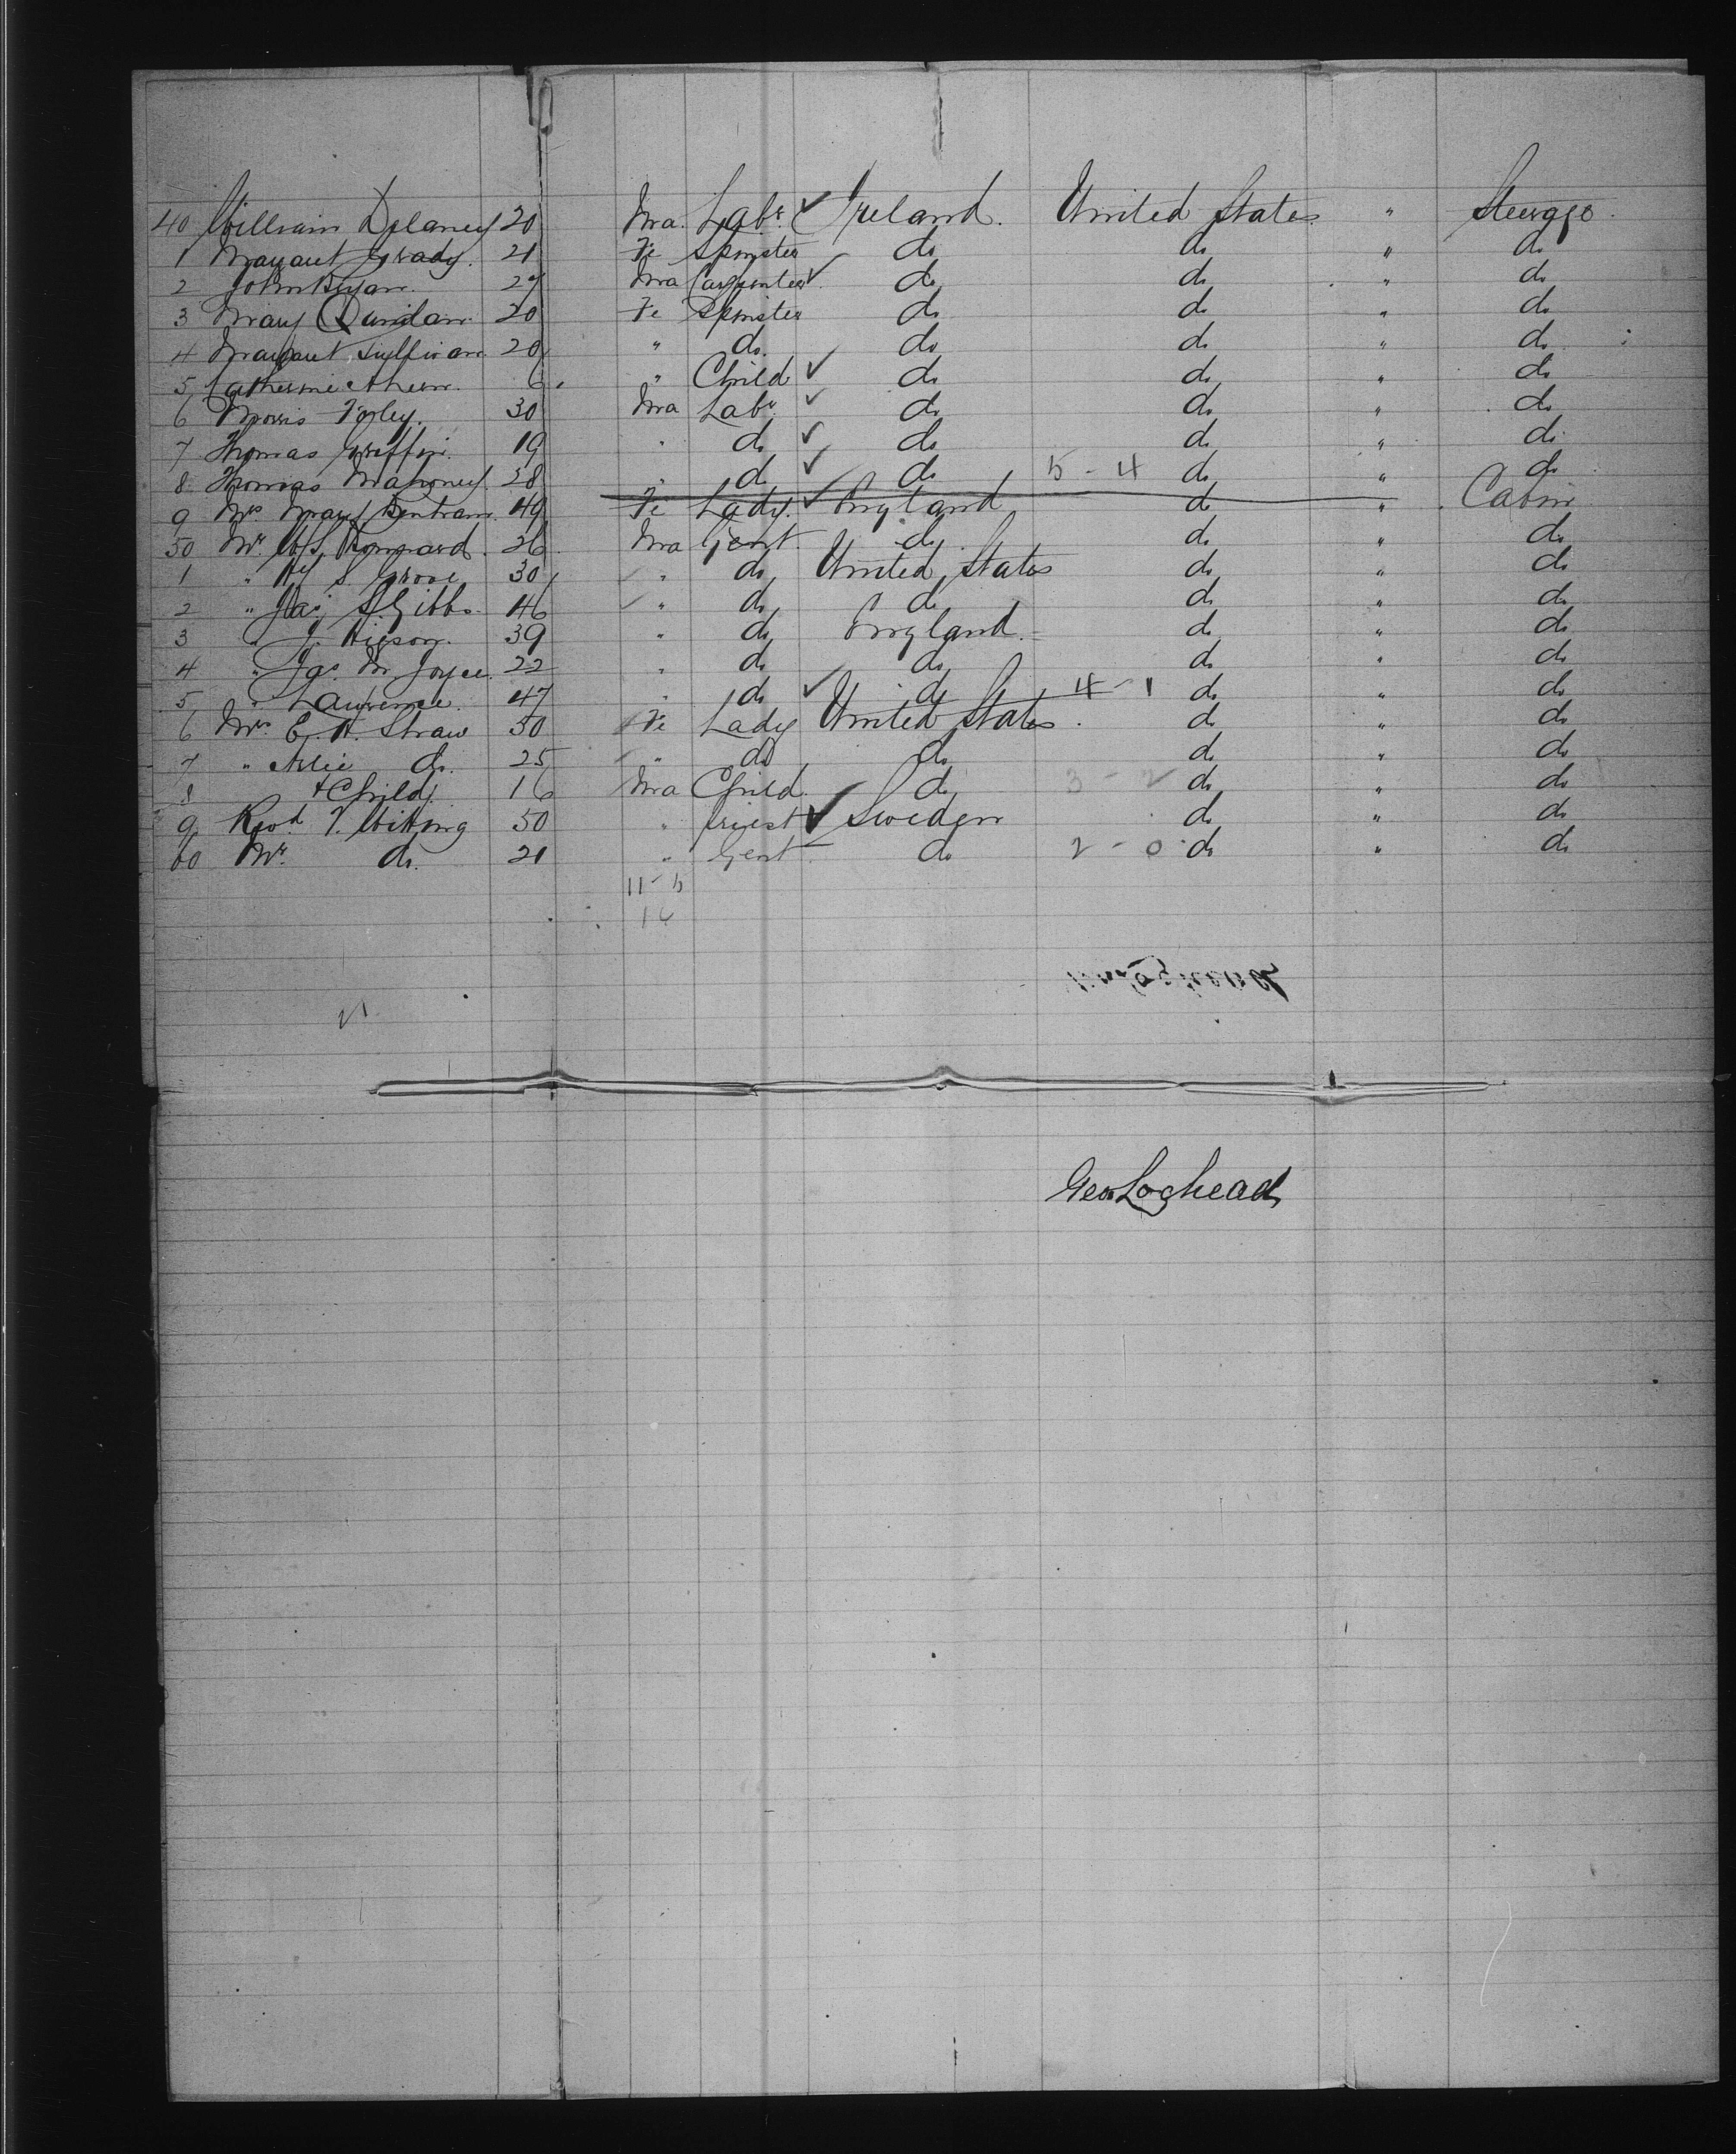 40 William Delaney 20 Ma. Labr. ✓ Ireland. United States " Steerage.
1 Margaret Grady. 21 Fe Spinster do do " do
2 John Ryan. 27 Ma Carpenter ✓ do do " do
3 Mary Quinlan 20 Fe Spinster do do " do
4 Margaret Sullivan 20 " do. do do " do
5 Catherine Ahern. 6 " Child ✓ do do " do
6 Morris Foley. 30 Ma Labr. ✓ do do " do
7 Thomas Griffin. 19 " do ✓ do do " do
8 Thomas Mahoney. 28 " do ✓ do 5-4 do " do
9 Mrs Mary Bentram 49 Fe Lady. ✓ England do " Cabin
50 Mr. 26 Ma Gent. do do " do
1 " Hy S. Grove 30 " do United States do " do
2 " Jas S. Gibbs 46 " do do do " do
3 " J. Higson. 39 " do England. do " do
4 " Jas. M Joyce. 22 " do do do " do
5 " Laurence. 47 " do ✓ do 4-1 do " do
6 Mrs. E. H. Straw 50 Fe Lady United States. do " do
7 " do. 25 " do do do " do
8 + Child 16 Ma Child. do 3-2 do " do
9 Revd. T. Witting 50 " Priest ✓ Sweden do " do
60 Mr. do. 21 " Gent. do 2-0 do " do
11-5
16
21
Geo Loghead